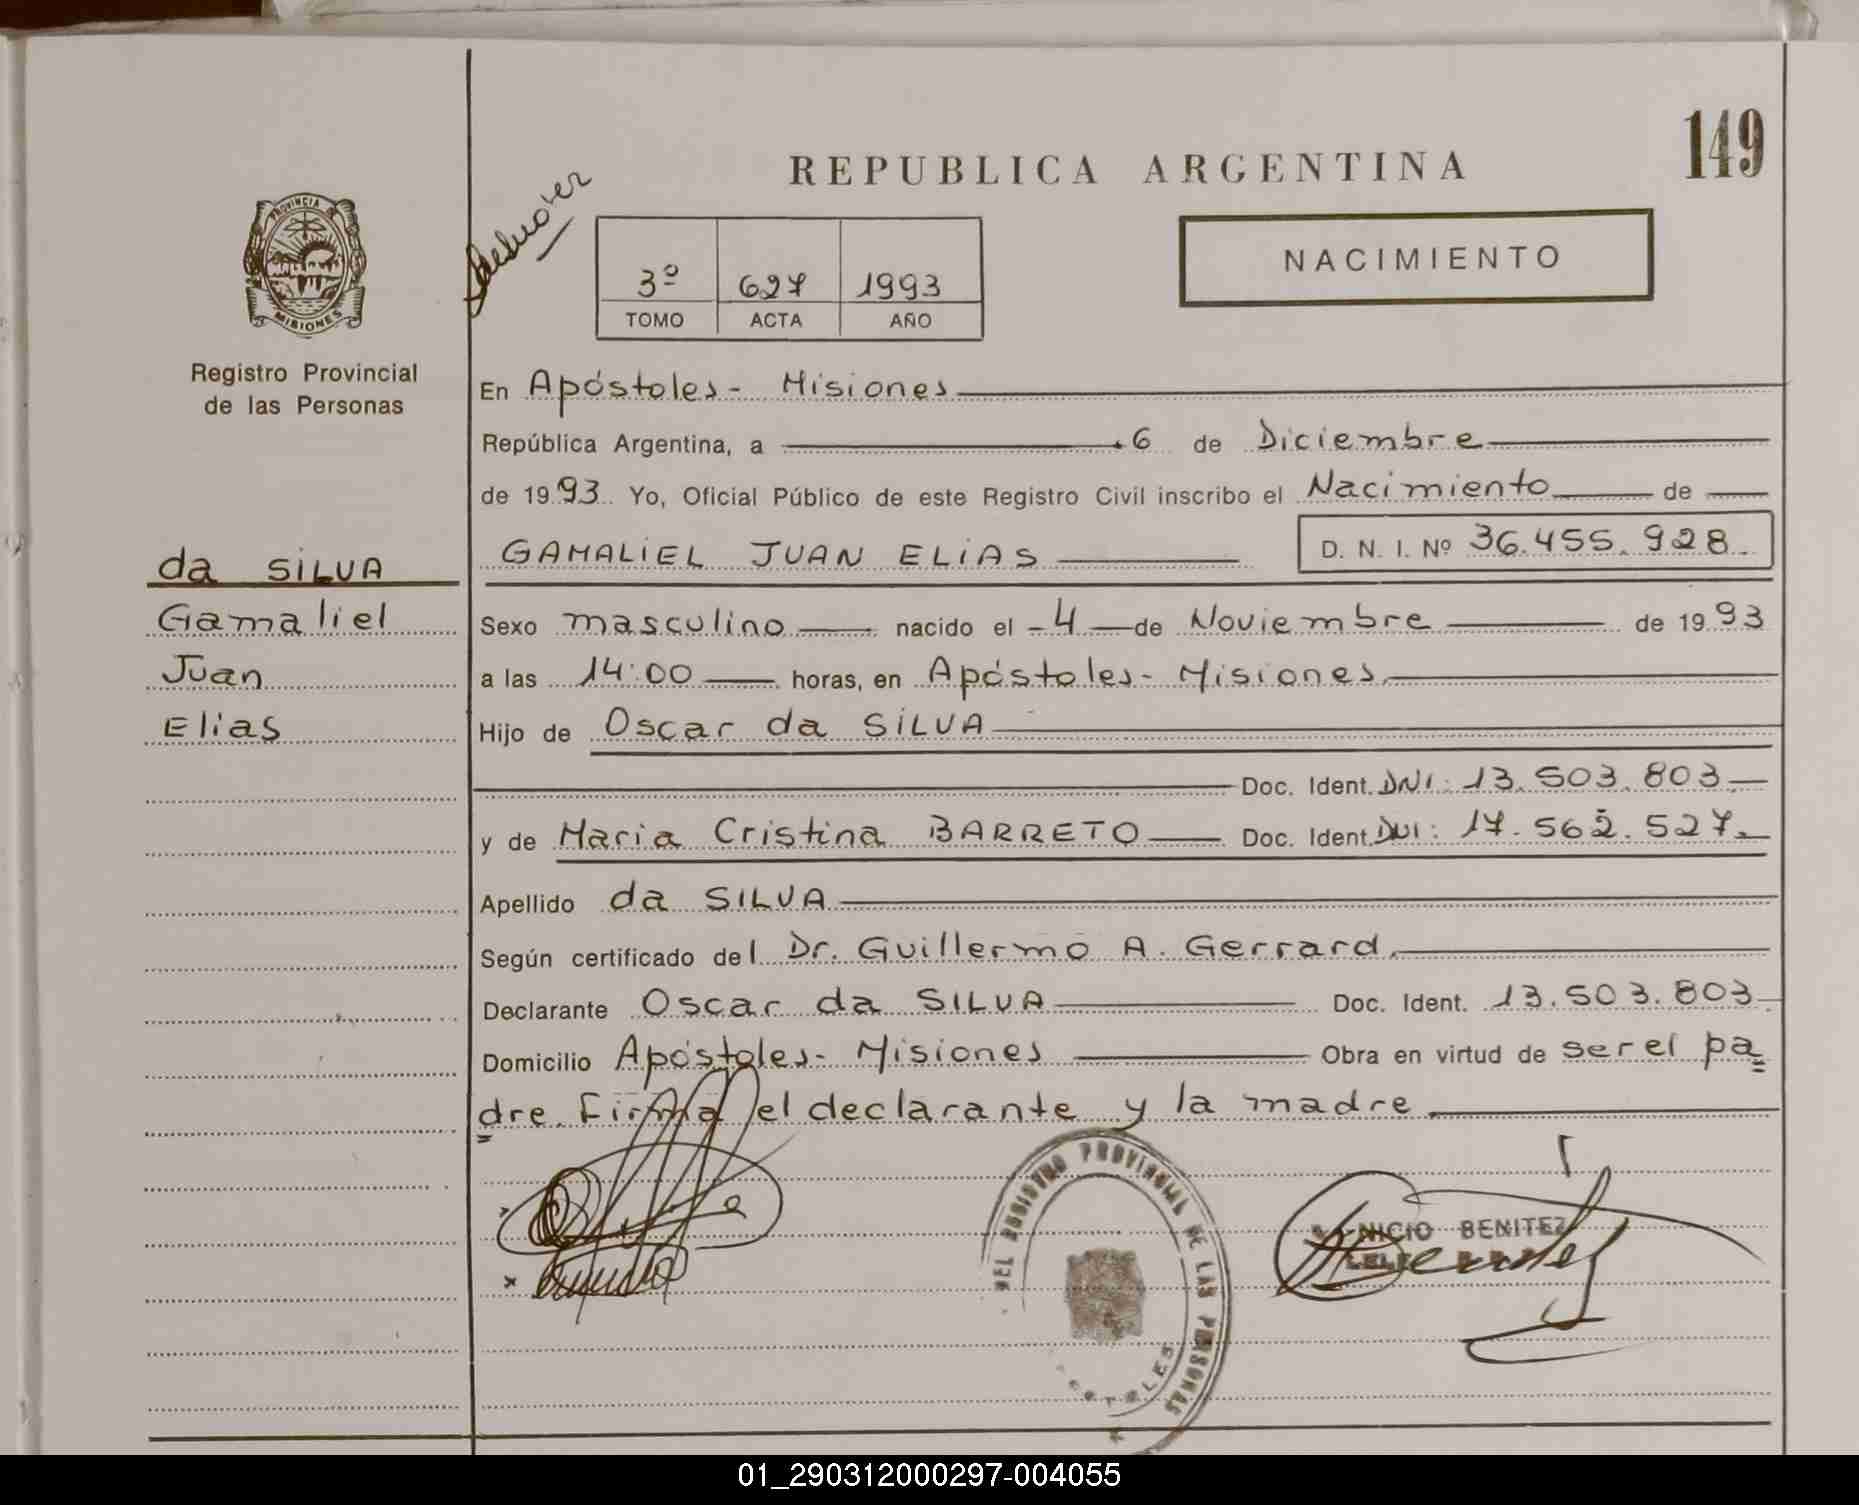 149
REPUBLICA ARGENTINA
PROVINCIA
MISIONES
Registro Provincial
de las Personas
3º 627 1993
TOMO ACTA AÑO
NACIMIENTO
En Apóstoles - Misiones
República Argentina, a 6 de Diciembre
de 1993 Yo, Oficial Público de este Registro Civil inscribo el Nacimiento de
GAMALIEL JUAN ELIAS D. N. I. Nº 36.455.928.
da SILVA
Gamaliel
Juan
Elias
Sexo masculino nacido el 4 de Noviembre de 1993
a las 14:00 horas, en Apóstoles - Misiones
Hijo de Oscar da SILVA
Doc. Ident. DNI: 13.503.803
y de Maria Cristina BARRETO Doc. Ident. DNI: 17.562.527
Apellido da SILVA
Según certificado del Dr. Guillermo A. Gerrard
Declarante Oscar da SILVA Doc. Ident. 13.503.803
Domicilio Apóstoles - Misiones Obra en virtud de ser el pa
dre. Firma el declarante y la madre
DEL REGISTRO PROVINCIAL DE LAS PERSONAS
BENITEZ
01_290312000297-004055